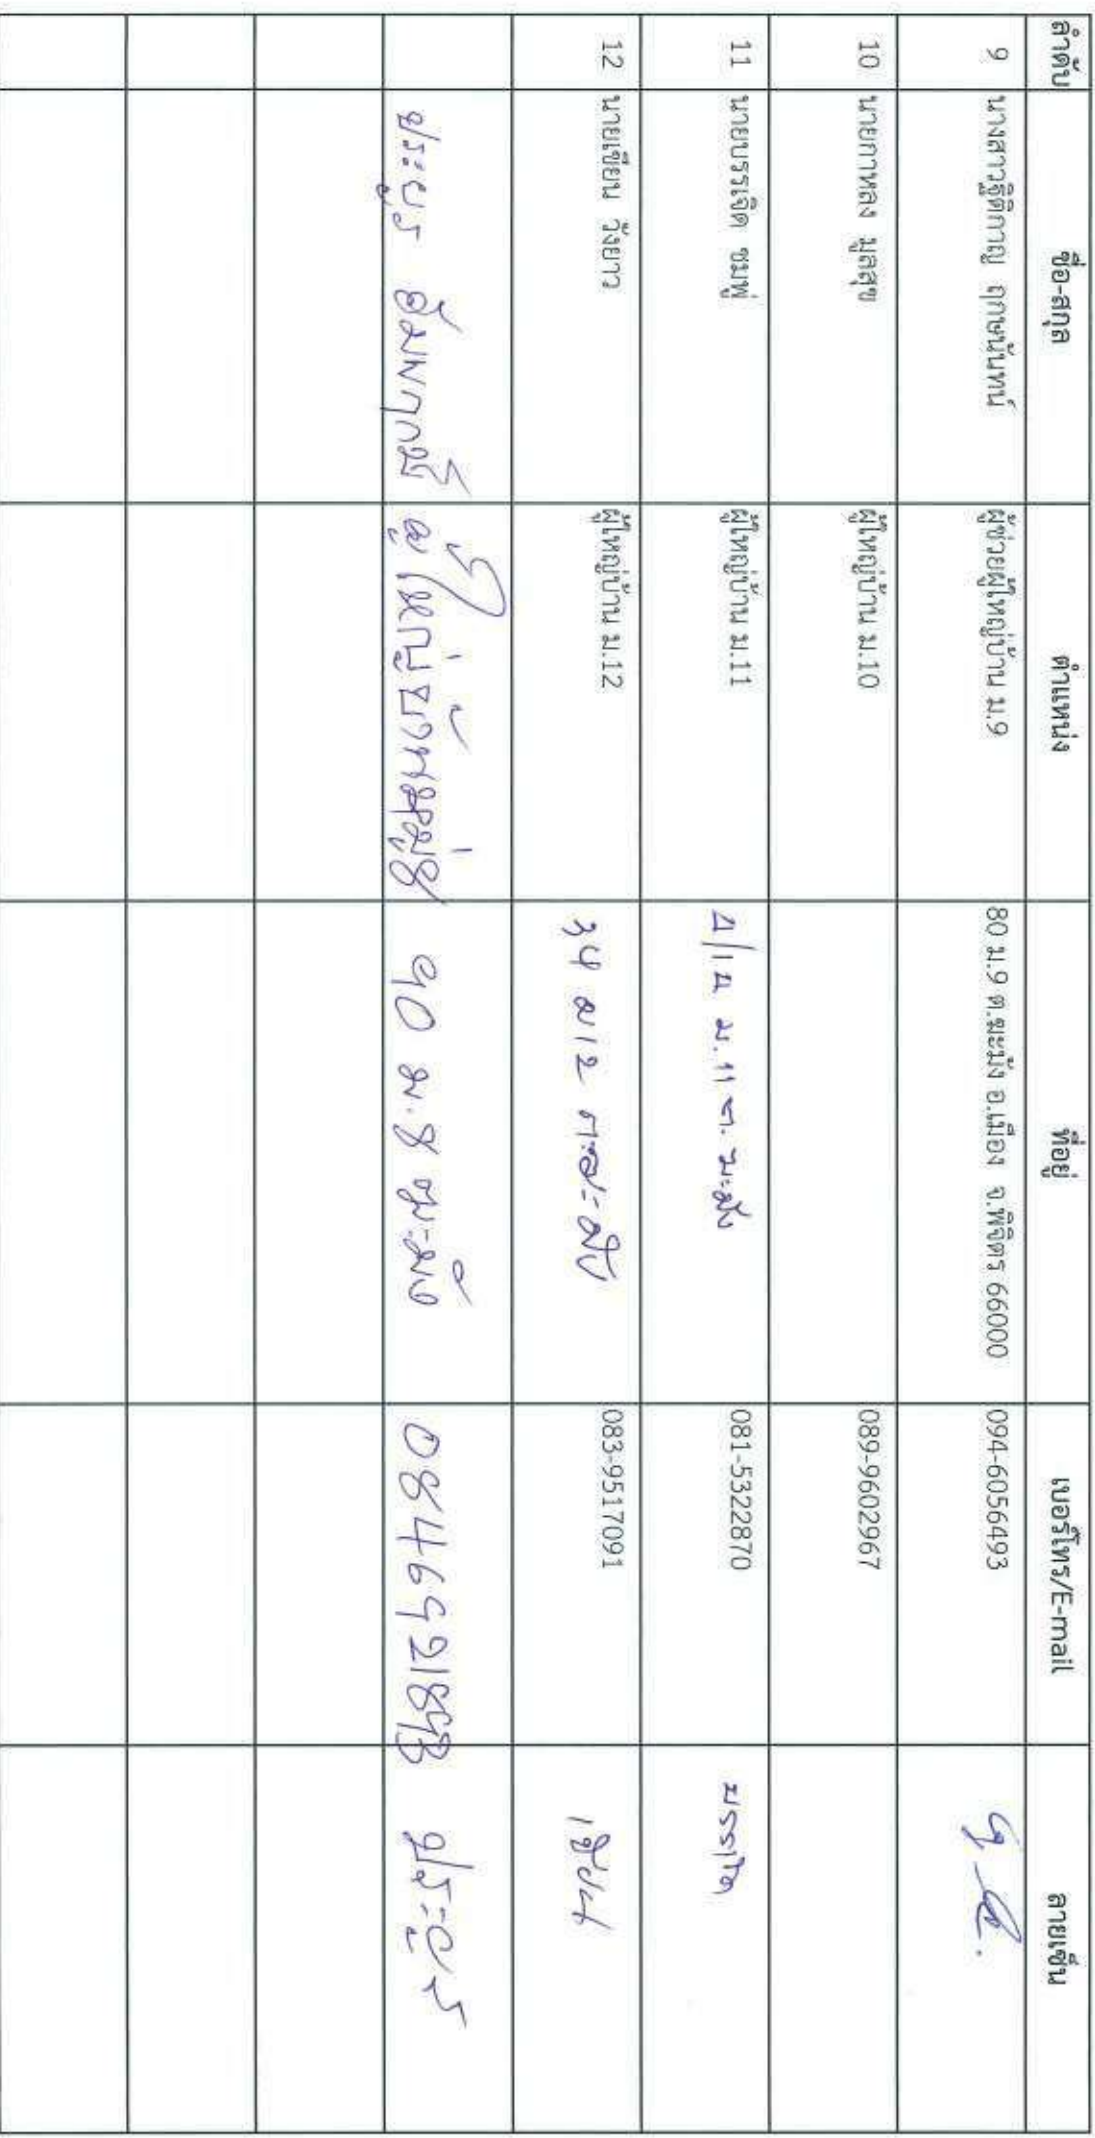 ลำดับ ชื่อ-สกุล ตำแหน่ง ที่อยู่ เบอร์โทร/E-mail ลายเซ็น
9 นางสาวฐิติกาญ ฤกษนันทน์ ผู้ช่วยผู้ใหญ่บ้าน ม.9 80 ม.9 ต.ฆะมัง อ.เมือง จ.พิจิตร 66000 094-6056493
10 นายกาหลง มูลสุข ผู้ใหญ่บ้าน ม.10 089-9602967
11 นายบรรเจิด ชมพู่ ผู้ใหญ่บ้าน ม.11 ม.11 ต.ฆะมัง 081-5322870 บรรเจิด
12 นายเขียน วังยาว ผู้ใหญ่บ้าน ม.12 34 ม12 ต.ฆะมัง 083-9517091 เขียน
ประยูร ผู้ใหญ่บ้านหมู่8 90 ม.8 ฆะมัง ประยูร